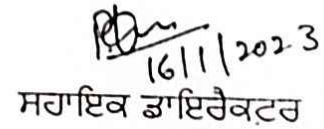 16/1/2023
ਸਹਾਇਕ ਡਾਇਰੈਕਟਰ